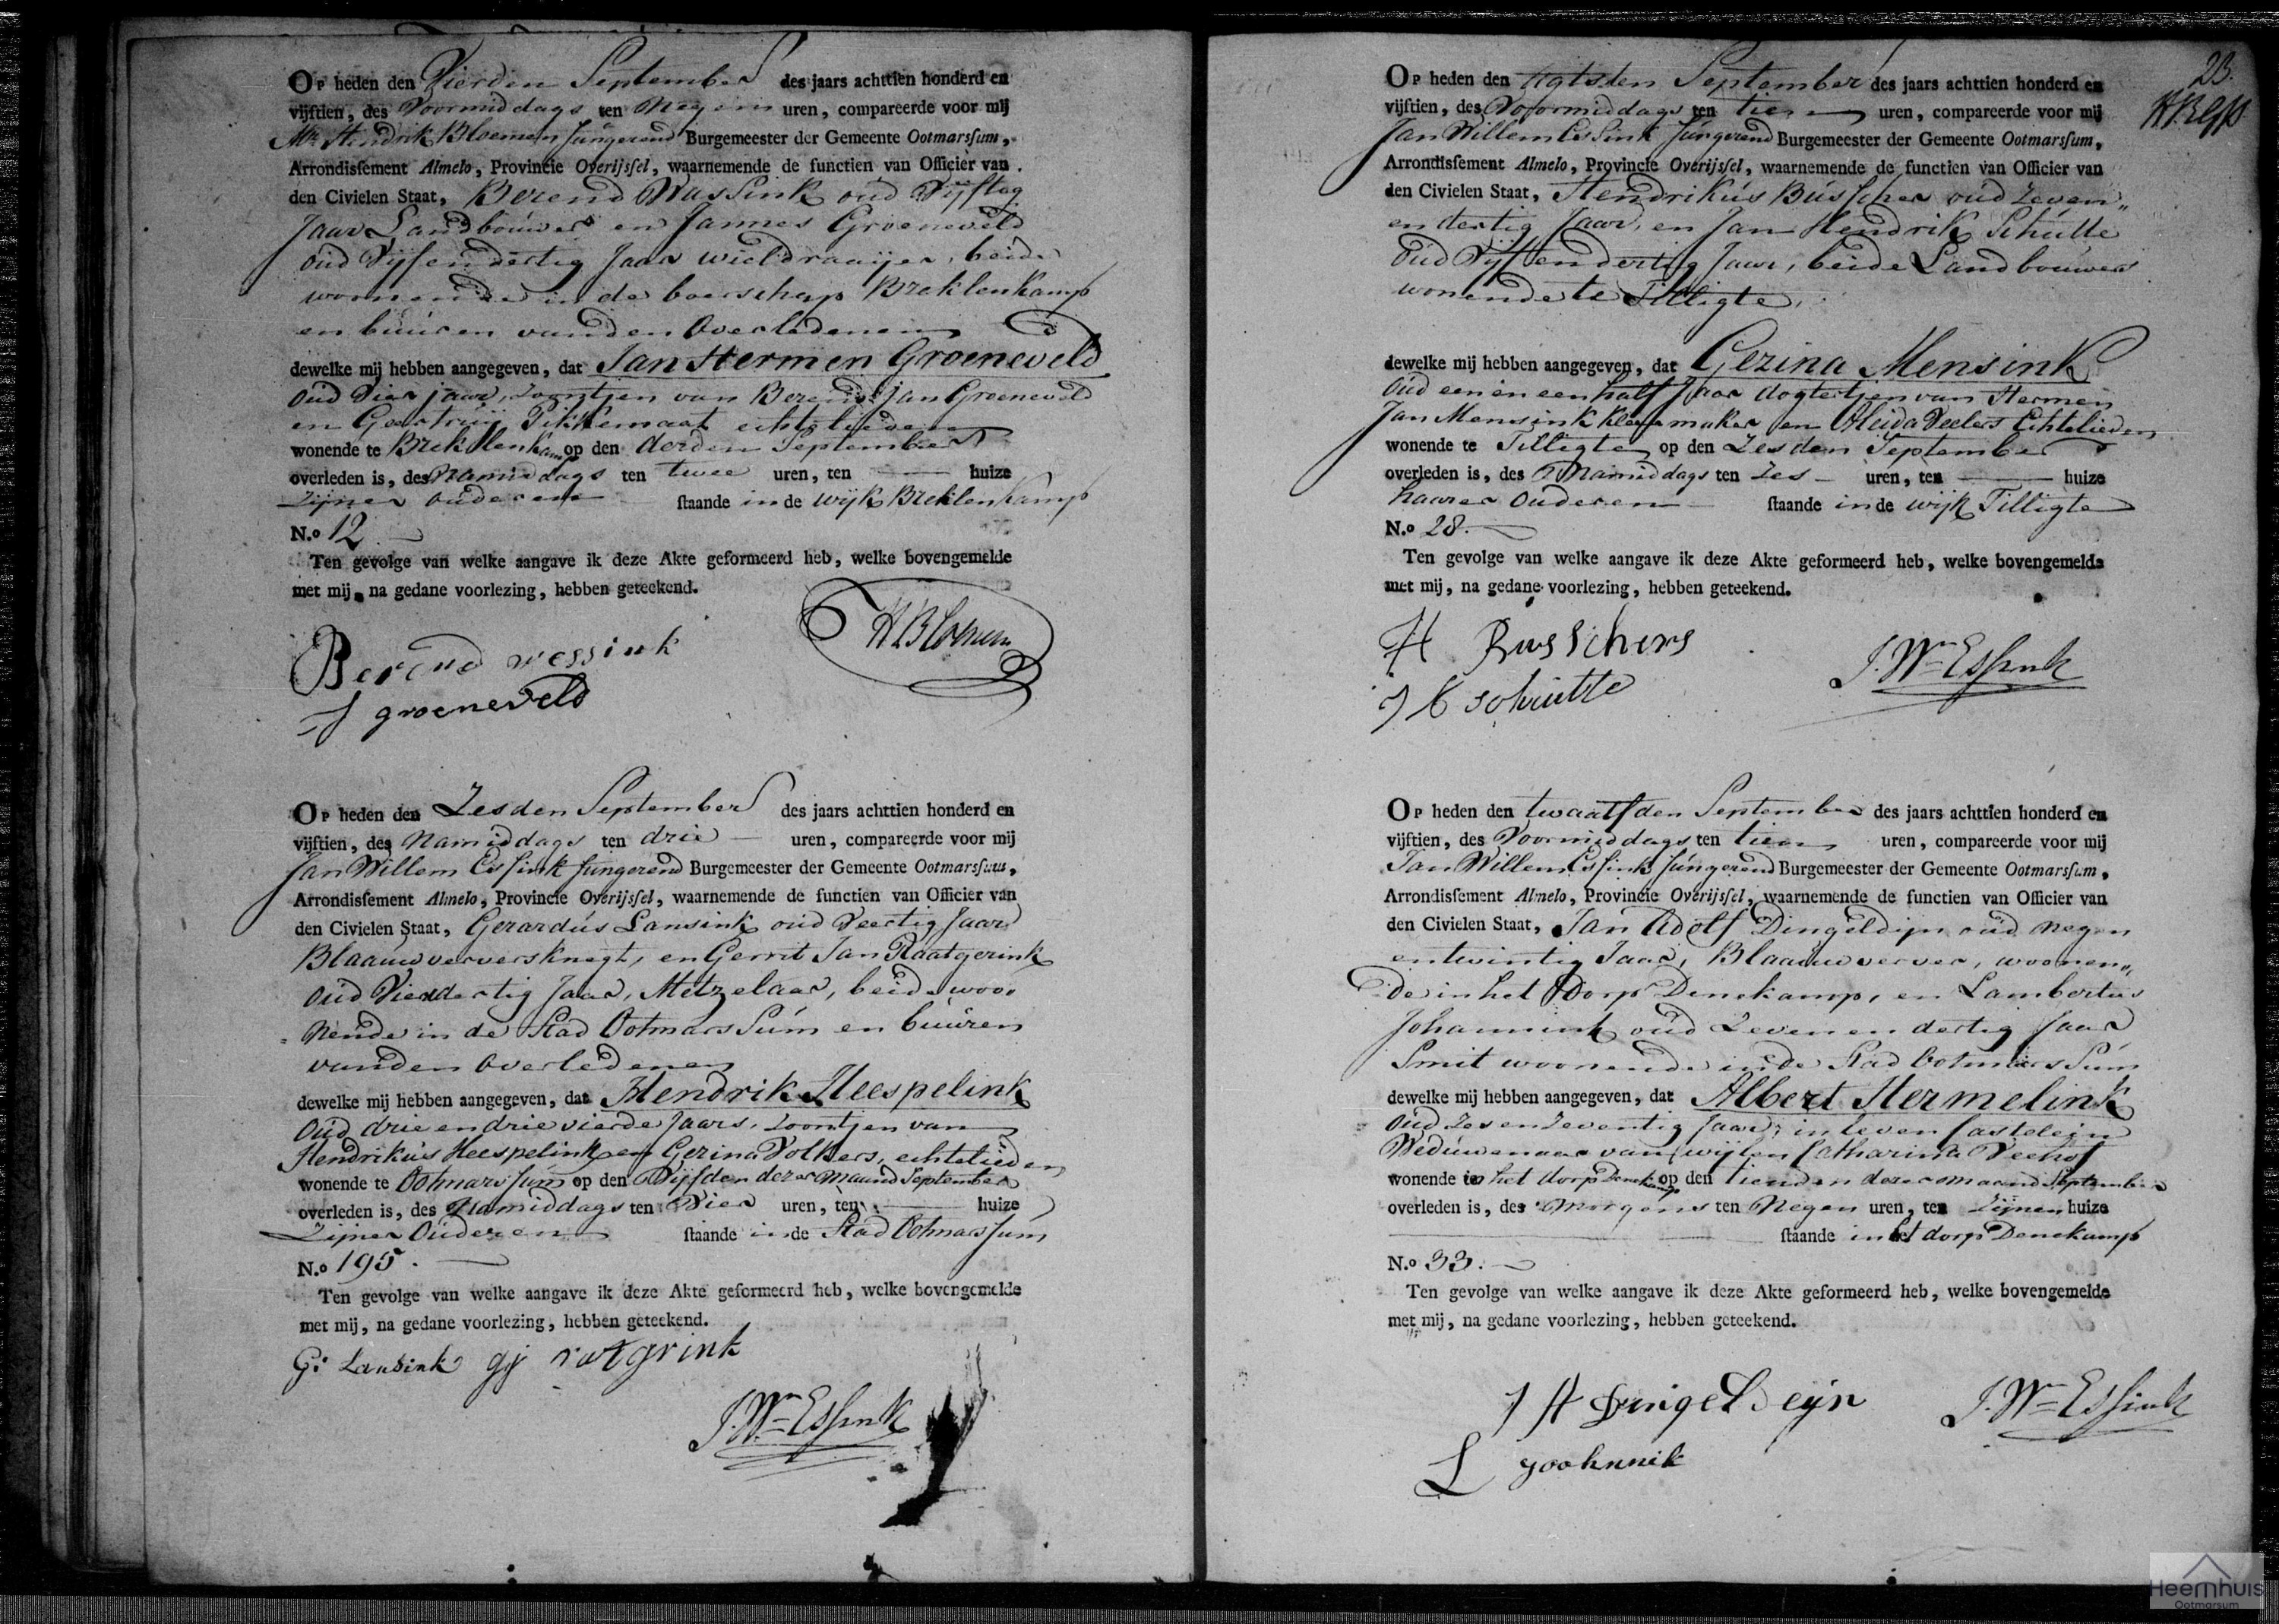 Op heden den Vierden September des jaars achttien honderd en
vijftien, des Voormiddags ten Negen uren, compareerde voor mij
Mr. Hendrik Bloemen fungerend Burgemeester der Gemeente Ootmarsſum,
Arrondisſement Almelo, Provincie Overijsſel, waarnemende de functien van Officier van
den Civielen Staat, Berend Wassink oud Vijftig
Jaar Landbouwer en Jannes Groeneveld
oud Vijfendertig Jaar wieldraaijer, beide
woonende in de boerschap Breklenkamp
en buuren van den Overledenen
dewelke mij hebben aangegeven, dat Jan Hermen Groeneveld
oud Vier jaar, zoontjen van Berend Jan Groeneveld
en Geertruij Pikkemaat echtelieden
wonende te Breklenkamp op den derden September
overleden is, des Namiddags ten twee uren, ten huize
Zijner ouderen ſtaande in de wijk Breklenkamp
N.o 12
Ten gevolge van welke aangave ik deze Akte geformeerd heb, welke bovengemelde
met mij, na gedane voorlezing, hebben geteekend.
HBloemen
Berend wessink
J groeneveld
Op heden den Zesden September des jaars achttien honderd en
vijftien, des Namiddags ten drie uren, compareerde voor mij
Jan Willem Essink fungerend Burgemeester der Gemeente Ootmarsſum,
Arrondisſement Almelo, Provincie Overijsſel, waarnemende de functien van Officier van
den Civielen Staat, Gerardús Lansink oud Veertig Jaar
Blaauwverversknegt, en Gerrit Jan Raatgerink
oud Vierdertig Jaar, Metzelaar, beide woo
nende in de Stad Ootmarssúm en buúren
van den Overledenen
dewelke mij hebben aangegeven, dat Hendrik Heespelink
Oud drie en drie vierde Jaars, zoontjen van
Hendrikús Heespelink en Gezina Volkers, echtelieden
wonende te Ootmarssúm op den Vijfden dezer maand September
overleden is, des Namiddags ten Vier uren, ten huize
Zijner Ouderen ſtaande in de Stad Ootmarssúm
N.o 195.
Ten gevolge van welke aangave ik deze Akte geformeerd heb, welke bovengemelde
met mij, na gedane voorlezing, hebben geteekend.
G: Lansink gij ratgrink
J. Wm Essink
23.
Op heden den agtsten September des jaars achttien honderd en
vijftien, des Voormiddags ten tien uren, compareerde voor mij
Jan Willem Essink fungerend Burgemeester der Gemeente Ootmarsſum,
Arrondisſement Almelo, Provincie Overijsſel, waarnemende de functien van Officier van
den Civielen Staat, Hendrikús Bússcher oud Zeven„
en dertig Jaar, en Jan Hendrik Schútte
oud Vijf en dertig Jaar, beide Landbouwers
wonende te Tilligte,
dewelke mij hebben aangegeven, dat Gezina Mensink
oud een en een half Jaar dogtertjen van Hermen
Jan Mensink Kleermaker en Aleida Veelers Echtelieden
wonende te Tilligte op den Zesden September
overleden is, des Namiddags ten Zes uren, ten huize
haarer Ouderen ſtaande in de wijk Tilligte
N.o 28.
Ten gevolge van welke aangave ik deze Akte geformeerd heb, welke bovengemelde
met mij, na gedane voorlezing, hebben geteekend.
H Busschers
J H schutte
J. Wm Essink
Op heden den twaalfden September des jaars achttien honderd en
vijftien, des Voormiddags ten tien uren, compareerde voor mij
Jan Willem Essink fúngerend Burgemeester der Gemeente Ootmarsſum,
Arrondisſement Almelo, Provincie Overijsſel, waarnemende de functien van Officier van
den Civielen Staat, Jan Adolf Dingeldijn oud negen
entwintig Jaar, Blaauwverver, woonen„
de in het Dorp Denekamp, en Lambertus
Johannink oud Zeven en dertig Jaar
Smit woonende in de Stad Ootmarssúm
dewelke mij hebben aangegeven, dat Albert Hermelink
Oud Zes en Zeventig Jaar, in leven Castelein
Wedúwenaar van wijlen Catharina Veehof
wonende in het dorp Denekamp op den tienden dezer maand September
overleden is, des Morgens ten Negen uren, ten Zijnen huize
ſtaande in het dorp Denekamp
N.o 33.
Ten gevolge van welke aangave ik deze Akte geformeerd heb, welke bovengemelde
met mij, na gedane voorlezing, hebben geteekend.
J A Dingeldeijn
J. Wm Essink
L joohnnik
Heemhuis
Ootmarsum